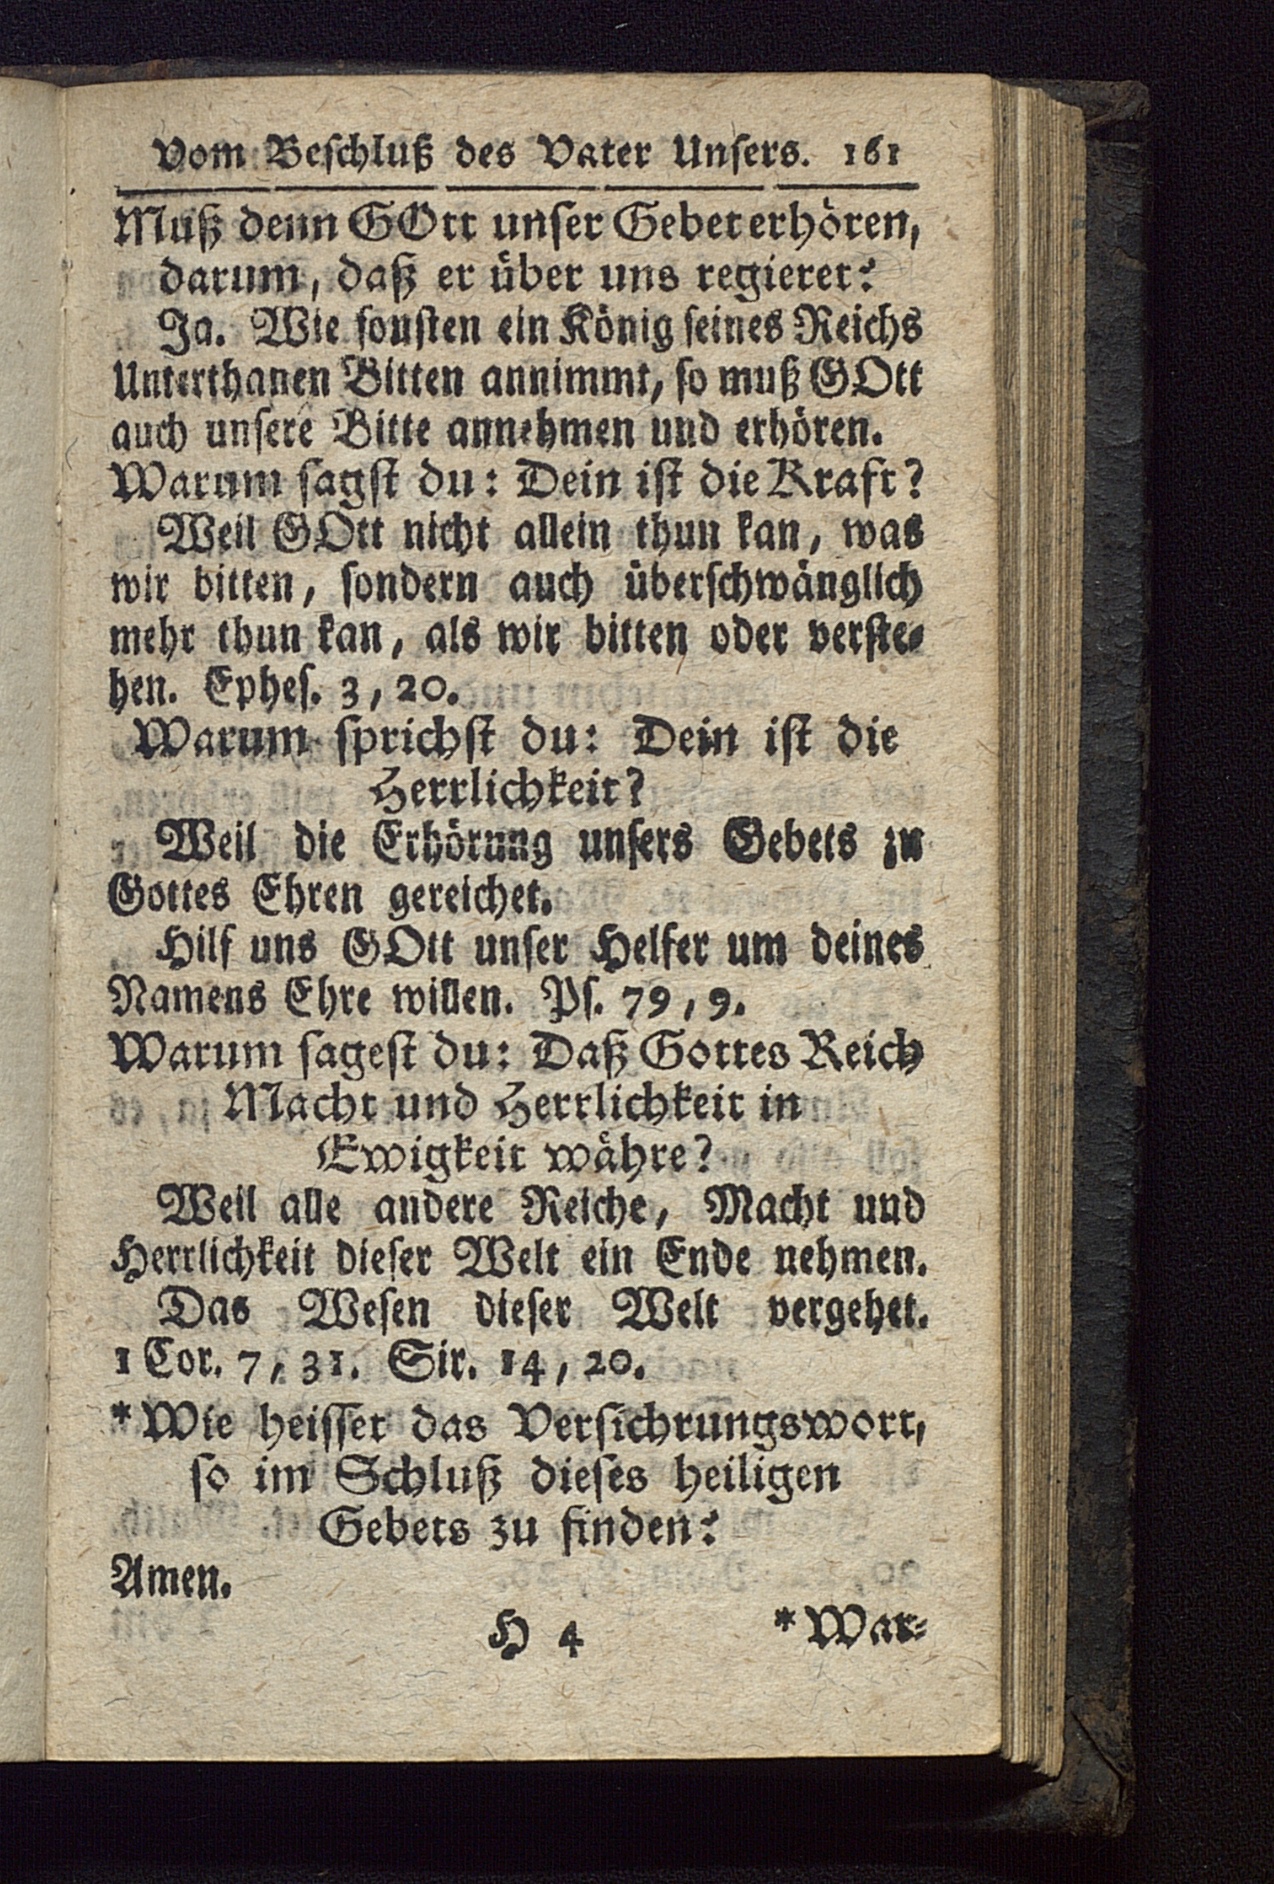 vom Beschluß des Vater Unsers. 161
Muß denn GOtt unser Gebet erhören,
darum, daß er über uns regieret?
Ja. Wie sonsten ein König seines Reichs
Unterthanen Bitten annimmt, so muß GOtt
auch unsere Bitte annehmen und erhören.
Warum sagst du: Dein ist die Kraft?
Weil GOtt nicht allein thun kan, was
wir bitten, sondern auch überschwänglich
mehr thun kan, als wir bitten oder verste-
hen. Ephes. 3, 20.
Warum sprichst du: Dein ist die
Herrlichkeit?
Weil die Erhörung unsers Gebets zu
Gottes Ehren gereichet.
Hilf uns GOtt unser Helfer um deines
Namens Ehre willen. Ps. 79, 9.
Warum sagest du: Daß Gottes Reich
Macht und Herrlichkeit in
Ewigkeit währe?
Weil alle andere Reiche, Macht und
Herrlichkeit dieser Welt ein Ende nehmen.
Das Wesen dieser Welt vergehet.
1 Cor. 7, 31. Sir. 14, 20.
*Wie heisset das Versichrungswort,
so im Schluß dieses heiligen
Gebets zu finden?
Amen.
H 4 *War-